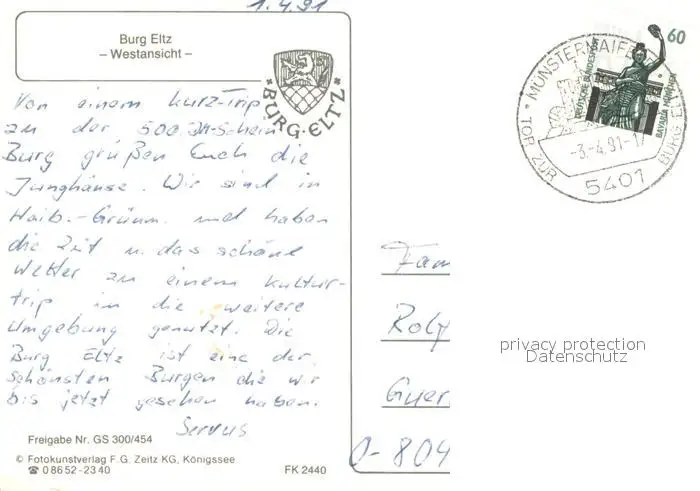 1.4.91
Burg Eltz
– Westansicht –
BURG·ELTZ
Von einem Kurz-Trip
zu der 500 DM-Schein
Burg grüßen Euch die
Junghänse. Wir sind in
Haib.-Grüm. und haben
die Zeit u. das schöne
Wetter zu einem Kultur-
trip in die weitere
Umgebung genutzt. Die
Burg Eltz ist eine der
schönsten Burgen die wir
bis jetzt gesehen haben.
Servus
Freigabe Nr. GS 300/454
© Fotokunstverlag F.G. Zeitz KG, Königssee
☎ 0 86 52 - 23 40
FK 2440
60
DEUTSCHE BUNDESPOST
BAVARIA MÜNCHEN
MÜNSTERMAIF
TOR ZUR BURG ELTZ
-3.-4.91-17
5401
Fam
Rolf
Guer
O-804
privacy protection
Datenschutz